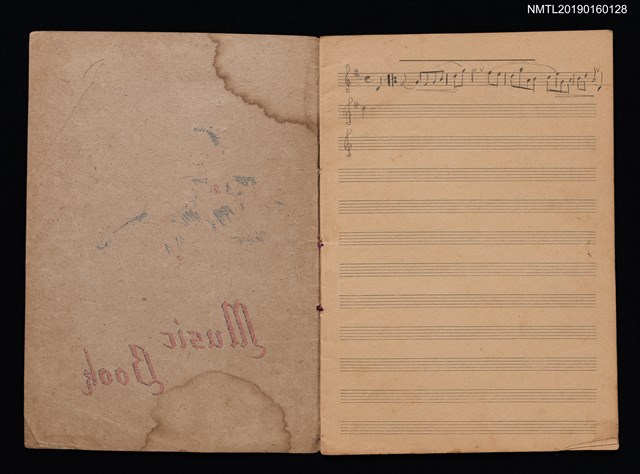 NMTL20190160128
Music
Book